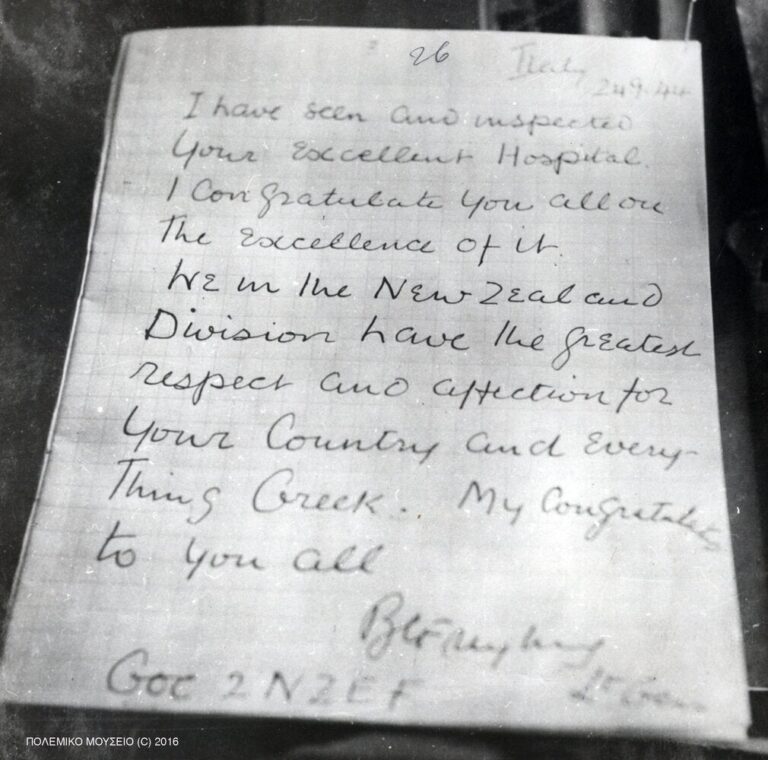 26
Italy
24.9.44
I have seen and inspected
Your Excellent Hospital.
I Congratulate You all on
The Excellence of it.
We in the New Zealand
Division have the greatest
respect and affection for
Your Country and Every-
Thing Greek. My Congratulats
to You all
Lt Gen
GOC 2 NZEF
ΠΟΛΕΜΙΚΟ ΜΟΥΣΕΙΟ (C) 2016